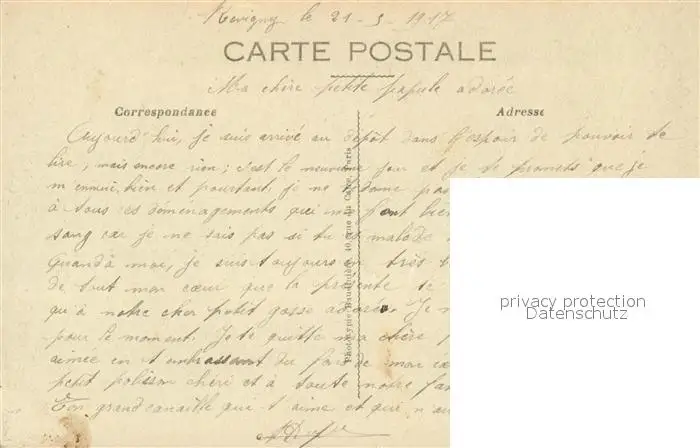 Revigny le 21-3-1917
CARTE POSTALE
Ma chère petite adorée
Correspondance
Adresse
Aujourd'hui, je suis arrivé au dépôt dans l'espoir de pouvoir te
lire, mais encore rien; c'est le neuvième jour et je te promets que je
m'ennui, bien et pourtant je ne
à tous ces déménagements qui font bien
sang car je ne sais pas si tu es malade
Quand à moi, je suis toujours en très
de tout mon cœur que la présente te
qu'à notre cher petit gosse adoré. Je
pour le moment. Je te quitte ma chère
aimée en t'embrassant du fond de mon
petit polisson chéri et à toute notre
Ton grand canaille qui t'aime et qui
Phototypie Baudinière, 40, rue du Caire, Paris
privacy protection
Datenschutz